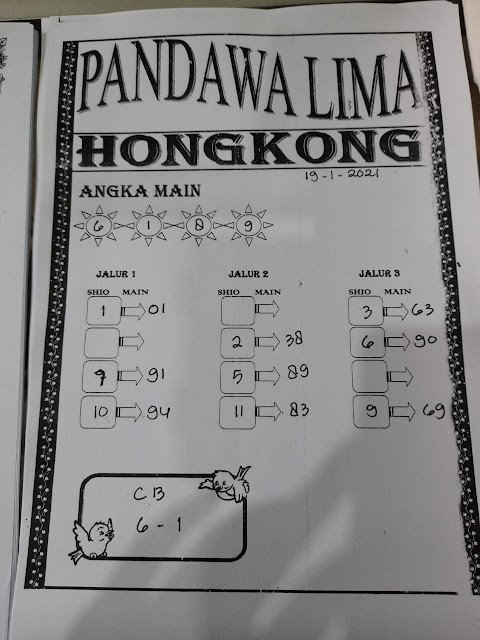 PANDAWA LIMA
HONGKONG
19-1-2021
ANGKA MAIN
6 1 8 9
JALUR 1 JALUR 2 JALUR 3
SHIO MAIN SHIO MAIN SHIO MAIN
1 01 3 63
2 38 6 90
9 91 5 89
10 94 11 83 9 69
CB
6 - 1